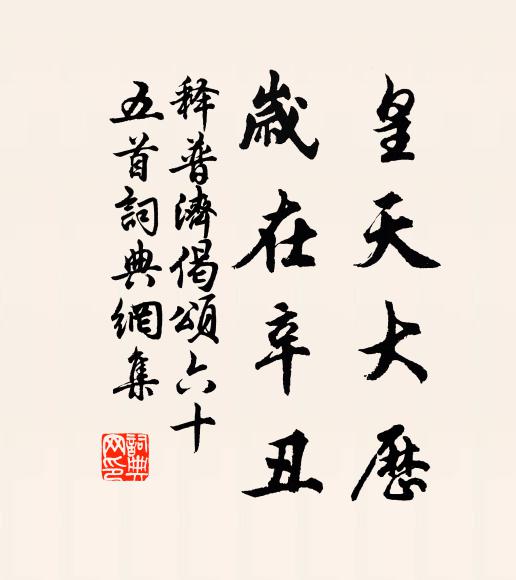 皇天大歷
歲在辛丑
釋普濟偈頌六十
五首詞典網集
詞典网印